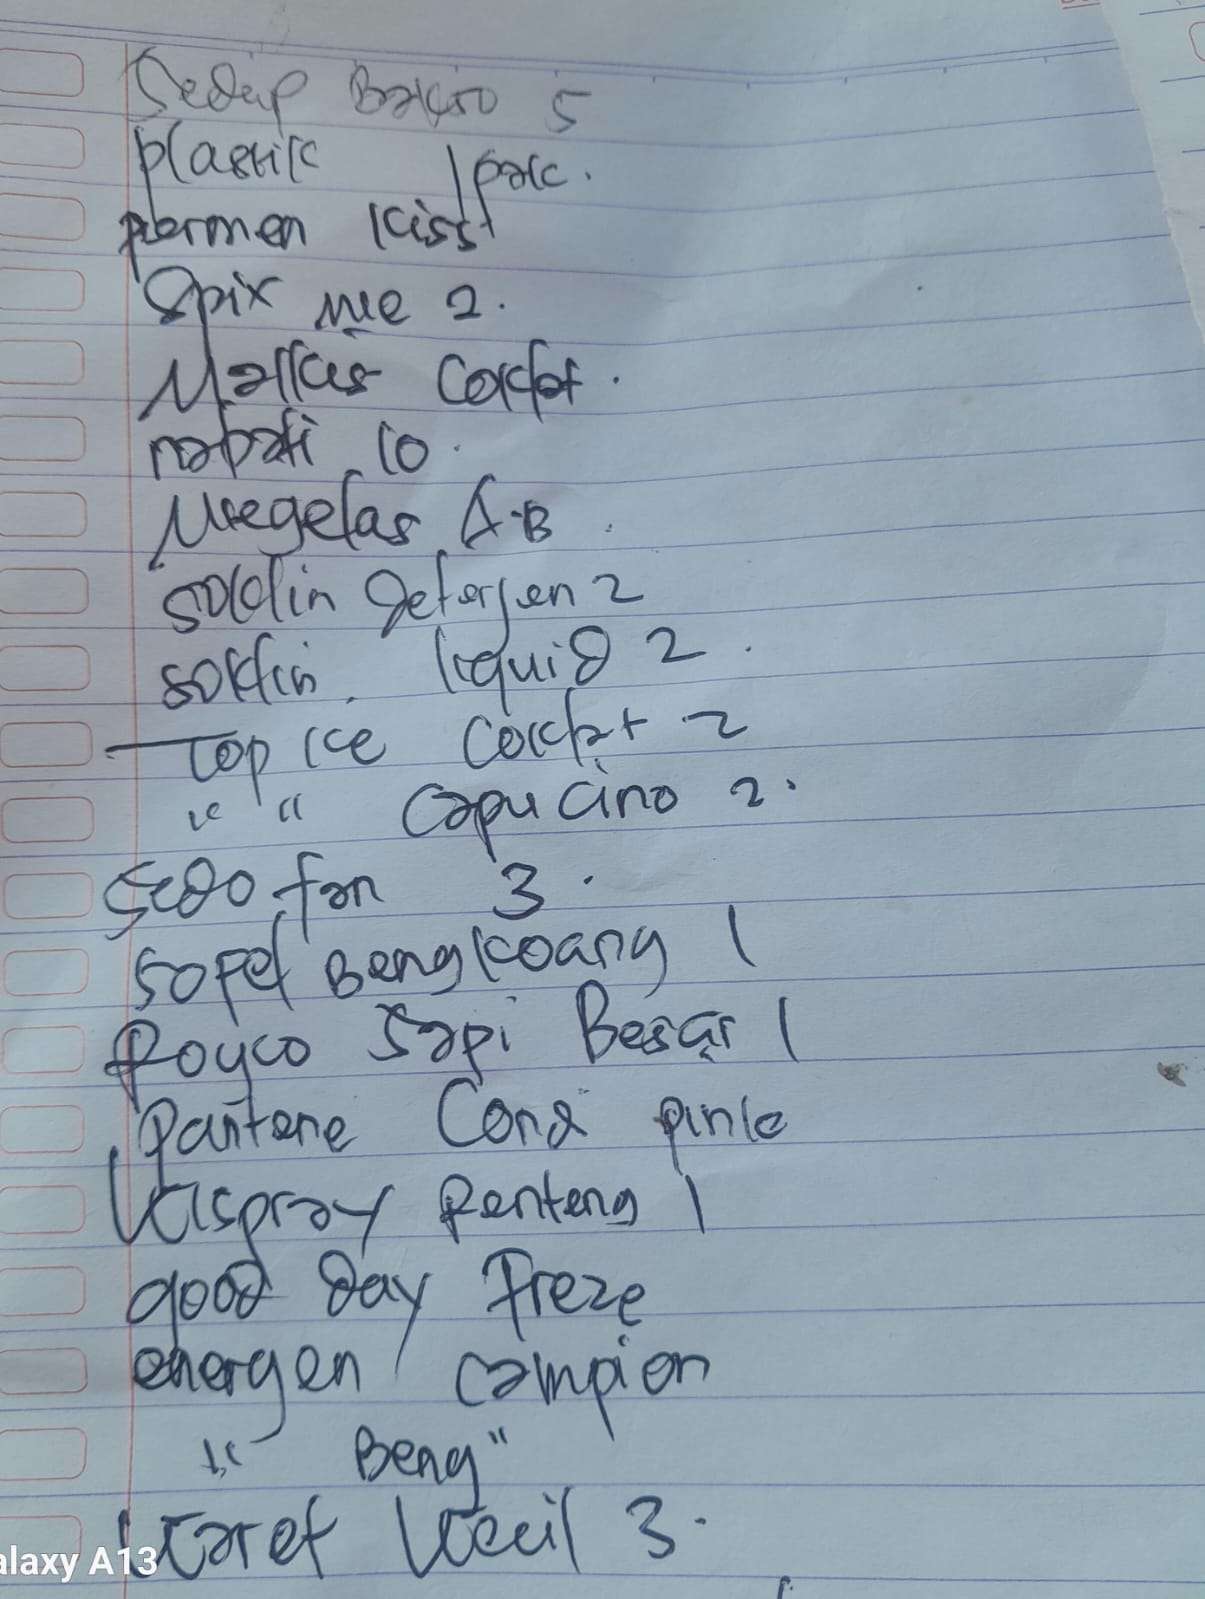 Sedap Bakso 5
plastik 1 pak.
permen kiss 1
Spix mie 2.
Malkis Coklat.
nabati 10.
Miegelas A-B
soklin detergen 2
soklin liquid 2.
Top ice Coklat 2
" " Capucino 2.
fan 3.
sofel Bengkoang 1
Royco Sapi Besar 1
Pantene Cond pink
Kispray Renteng 1
good day Freze
energen campion
" Beng"
Karet Kecil 3.
alaxy A13